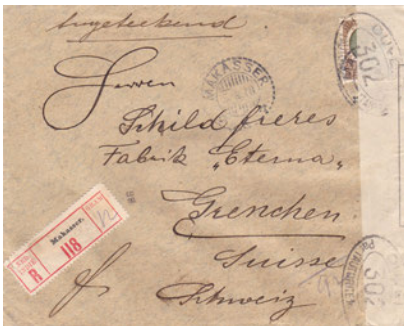 Aangeteekend.
MAKASSER
Herren
Schild frères
Fabrik „Eterna„
Grenchen
Suisse
Schweiz
Makasser.
R 118
302
302